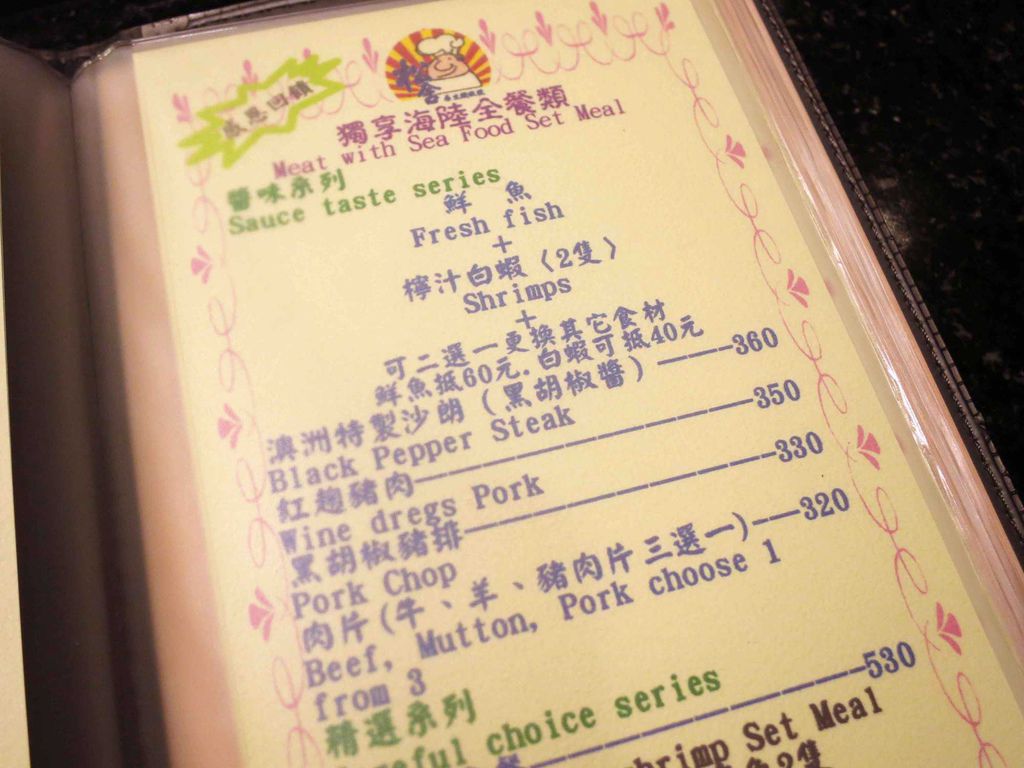 感恩回饋
獨享海陸全餐類
Meat with Sea Food Set Meal
醬味系列
Sauce taste series
鮮 魚
Fresh fish
+
檸汁白蝦〈2隻〉
Shrimps
+
可二選一更換其它食材
鮮魚抵60元.白蝦可抵40元
澳洲特製沙朗(黑胡椒醬)———360
Black Pepper Steak
紅麴豬肉——————————————350
Wine dregs Pork
黑胡椒豬排————————————330
Pork Chop
肉片(牛、羊、豬肉片三選一)——320
Beef, Mutton, Pork choose 1
from 3
精選系列
choice series
530
Set Meal
2隻